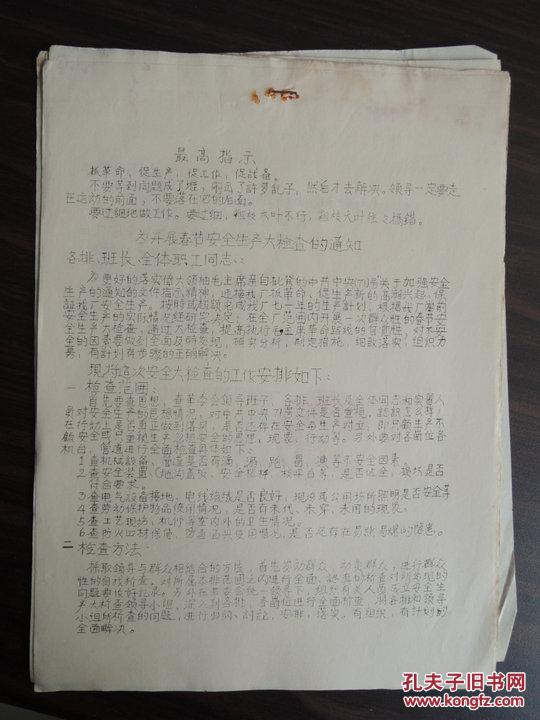 最高指示
抓革命、促生产，促工作，促战备。
不要等到问题成了堆，闹出了许多乱子，然后才去解决。领导一定要走
在运动的前面，不要落在它的后面。
要过细地做工作。要过细，粗枝大叶不行，粗枝大叶往往搞错。
为开展春节安全生产大检查的通知
各排、班长、全体职工同志：
为更好的落实伟大领袖毛主席亲自批发的中共中央(71)号"关于加强安全
生产的通知的文件指示精神，迎接我厂抓革命，促生产新的高潮兴起，保
证我厂安全生产，
安全生产的实际情况经研究决定，在全厂范围内开展一次群众性的春节安
全生产大检查，通过大检查，提高执行毛主席革命路线的自觉性，对不安
全的因素要做到全面及时发现，确实分析，制定措施，细致落实，组织力
量，有计划有步骤的正确解决。
现将这次安全大检查的工作安排如下：
一 检查范围：
首先要查思想，查革委会领导班子、各排、班长及全体同志和实习人
员对安全生产的思想情况，对中共中央71号文件是否重视，认识怎么样，
在行动上是否真正做到落实，是否还存在安全与生产对立，即只顾生产不
顾安全
机台，管道进行全面检查具体如下：
1查机械设备，管道是否有滴、漏、跑、冒、冻等不安全因素。
2查安全装置
符合要求。
3查电气设备接地，电线绝缘是否良好，现场及公用场所照明是否安全等
4查劳动保护物品使用情况，是否有未代、未穿、未用的现象。
5查工艺现场，机修等室内外的卫生情况。
6查防火四材保管、防毒面具使用情况，是否还存在易燃易爆的隐患。
二 检查方法：
采取领导与群众相结合的方法，首先发动群众、动员群众，进行群众
性的自我检查，对所属本排范围之内进行全面、认真的检查对所发现的
问题要做好记录。另外在革委会统一领导下，组织有关人员成立安全生
产大检查领导小组，深入到各排、各岗位进行全面检查，将各排和领导
小组所检查的问题，进行归纳、讨论，安排，落实。有组织，有计划的
全面解决。
孔夫子旧书网